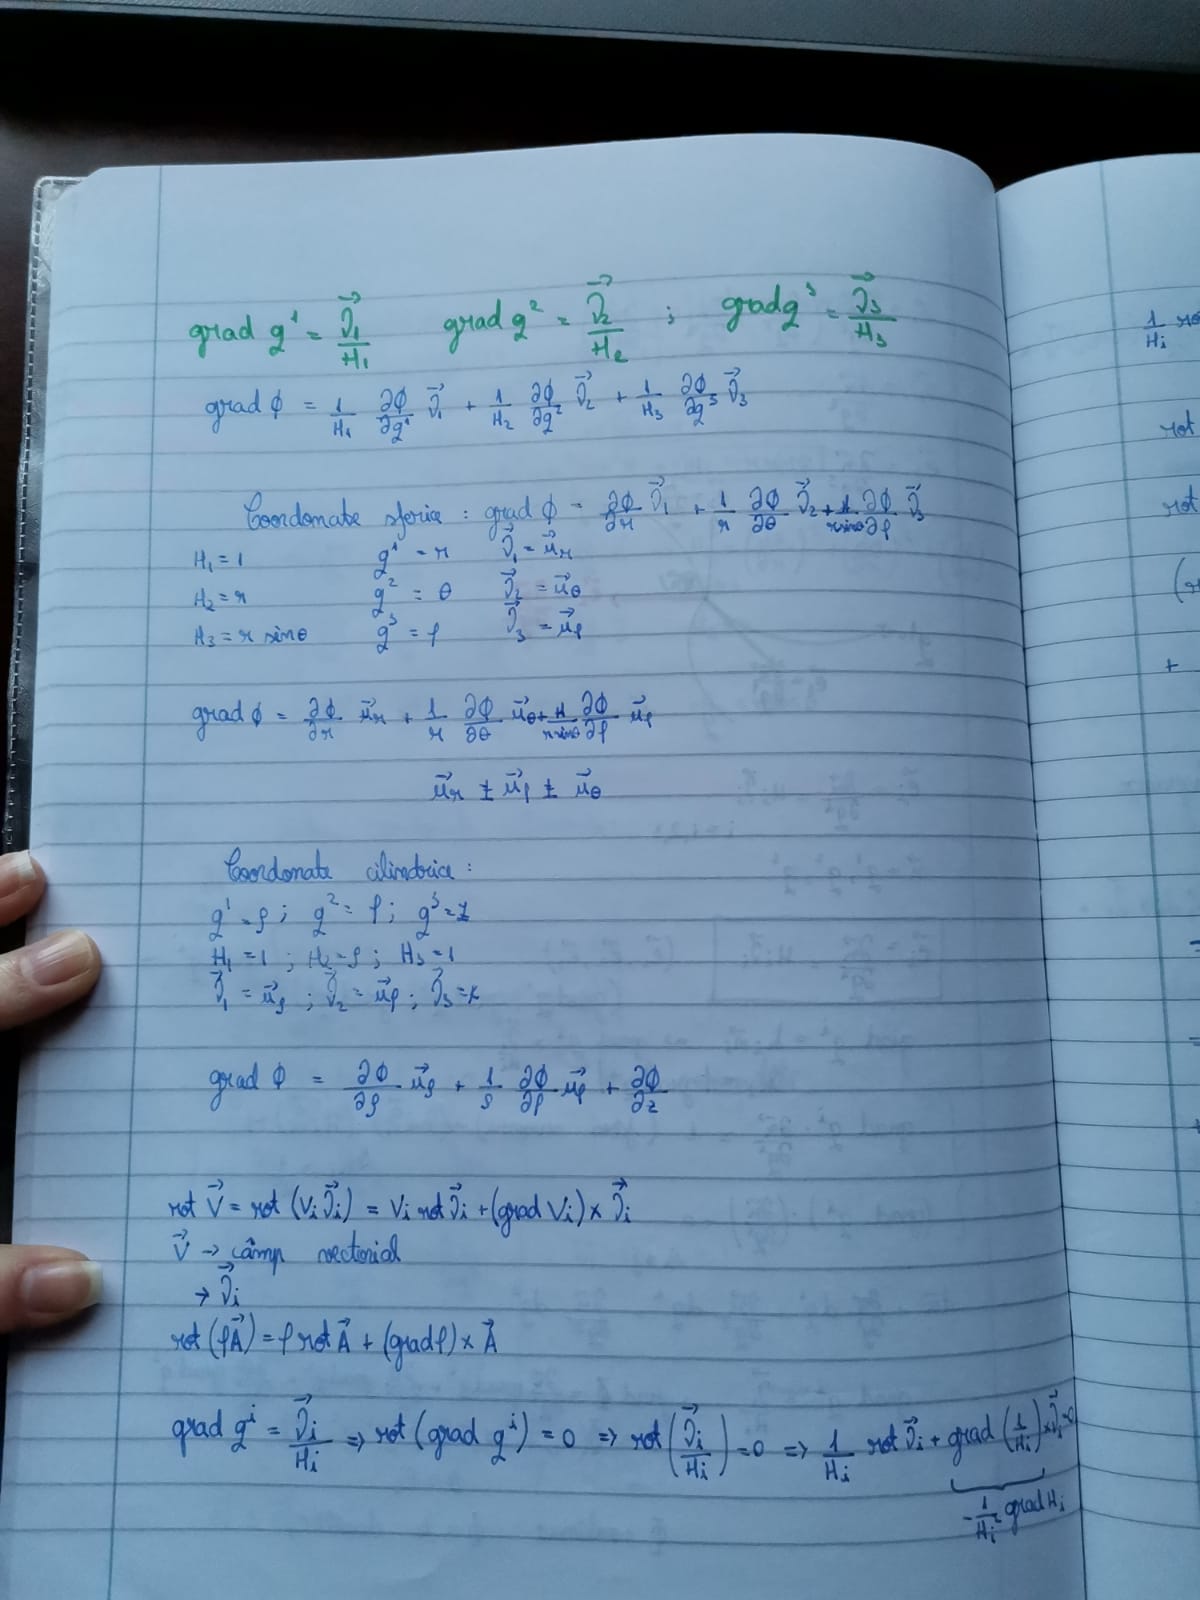 grad q¹ = J⃗₁/H₁ grad q² = J⃗₂/H₂ ; grad q³ = J⃗₃/H₃
grad ϕ = 1/H₁ ∂ϕ/∂q¹ J⃗₁ + 1/H₂ ∂ϕ/∂q² J⃗₂ + 1/H₃ ∂ϕ/∂q³ J⃗₃
Coordonate sferice : grad ϕ = ∂ϕ/∂r J⃗₁ + 1/r ∂ϕ/∂θ J⃗₂ + 1/(r sinθ) ∂ϕ/∂φ J⃗₃
H₁ = 1 q¹ = r J⃗₁ = u⃗r
H₂ = r q² = θ J⃗₂ = u⃗θ
H₃ = r sinθ q³ = φ J⃗₃ = u⃗φ
grad ϕ = ∂ϕ/∂r u⃗r + 1/r ∂ϕ/∂θ u⃗θ + 1/(r sinθ) ∂ϕ/∂φ u⃗φ
u⃗r ± u⃗φ ± u⃗θ
Coordonate cilindrice :
q¹ = ρ ; q² = φ ; q³ = z
H₁ = 1 ; H₂ = ρ ; H₃ = 1
J⃗₁ = u⃗ρ ; J⃗₂ = u⃗φ ; J⃗₃ = k
grad ϕ = ∂ϕ/∂ρ u⃗ρ + 1/ρ ∂ϕ/∂φ u⃗φ + ∂ϕ/∂z
rot V⃗ = rot (Vi J⃗i) = Vi rot J⃗i + (grad Vi) × J⃗i
V⃗ → câmp vectorial
→ J⃗i
rot (φA⃗) = φ rot A⃗ + (grad φ) × A⃗
grad qⁱ = J⃗i/Hi ⇒ rot (grad qⁱ) = 0 ⇒ rot (J⃗i/Hi) = 0 ⇒ 1/Hi rot J⃗i + grad (1/Hi) × J⃗i = 0
- 1/Hi² grad Hi
1/Hi
rot
rot
+